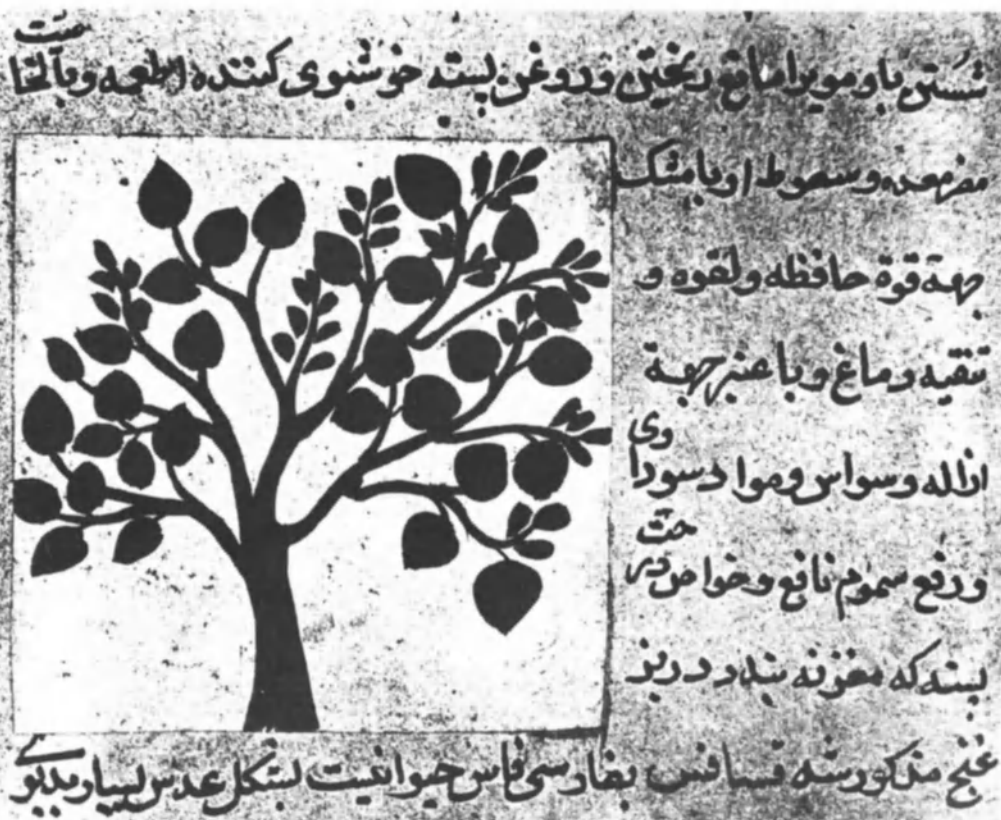 شستن با و مویرا مانع ریختن و روغن پسته خوشبوی کننده اطعمه و بالخاصیت
مضر معده و سعوط او با مشک
جهة قوة حافظه و لقوه و
تنقیه دماغ و با عنبر جهة
ازاله وسواس و مواد سوداوی
و رفع سموم نافع و خواص درخت
پسته که مغز نه بندد در بز
غنج مذکور شد فسافس بفارسی ساس حیوانیست بشکل عدس بسیار بدبوی